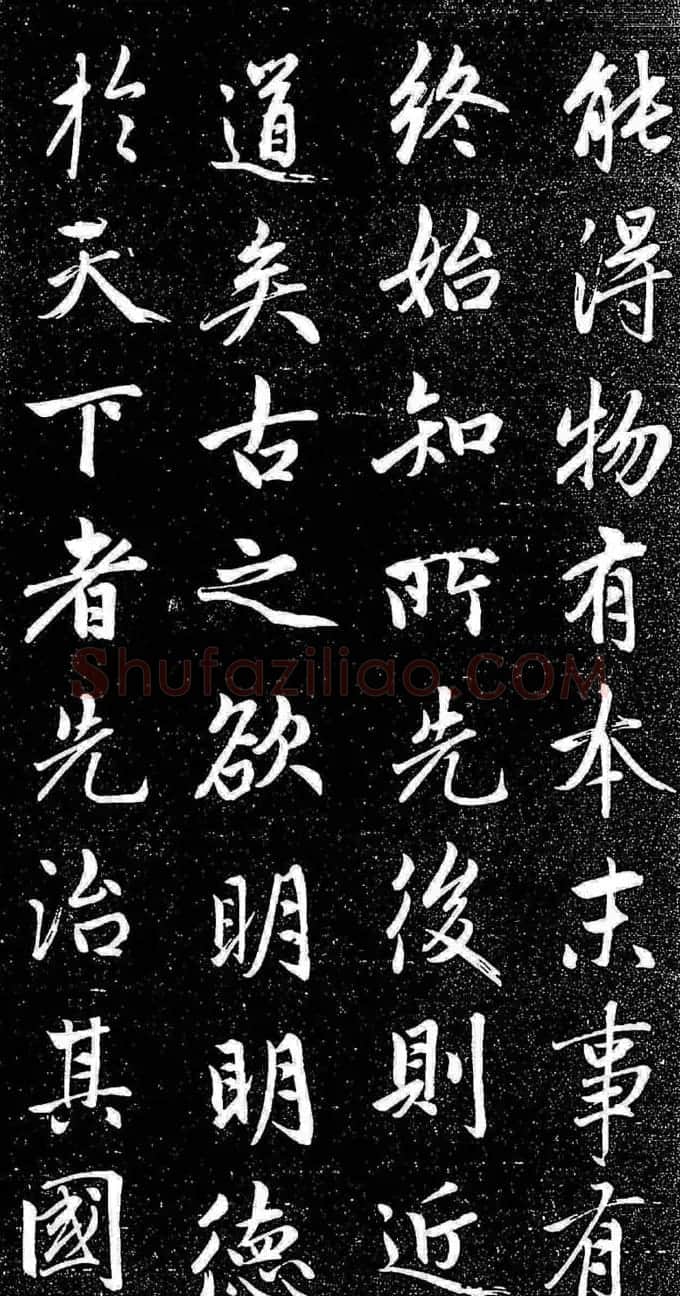 能得物有本末事有
終始知所先後則近
道矣古之欲明明德
於天下者先治其國
Shufaziliao.COM